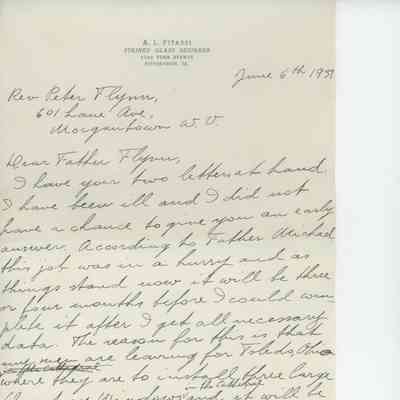 A. L. PITASSI
STAINED GLASS DESIGNER
PENN AVENUE
PITTSBURGH, PA.
June 6th 195
Rev. Peter Flynn,
601 Lane Ave,
Morgantown W. V.
Dear Father Flynn,
I have your two letters at hand.
I have been ill and I did not
have a chance to give you an early
answer. According to Father Michael
this job was in a hurry and as
things stand now it will be three
or four months before I could com
plete it after I get all necessary
data. The reason for this is that
my men are leaving for Toledo, Ohio
where they are to install three large
in the Cathedral
Windows and it will be